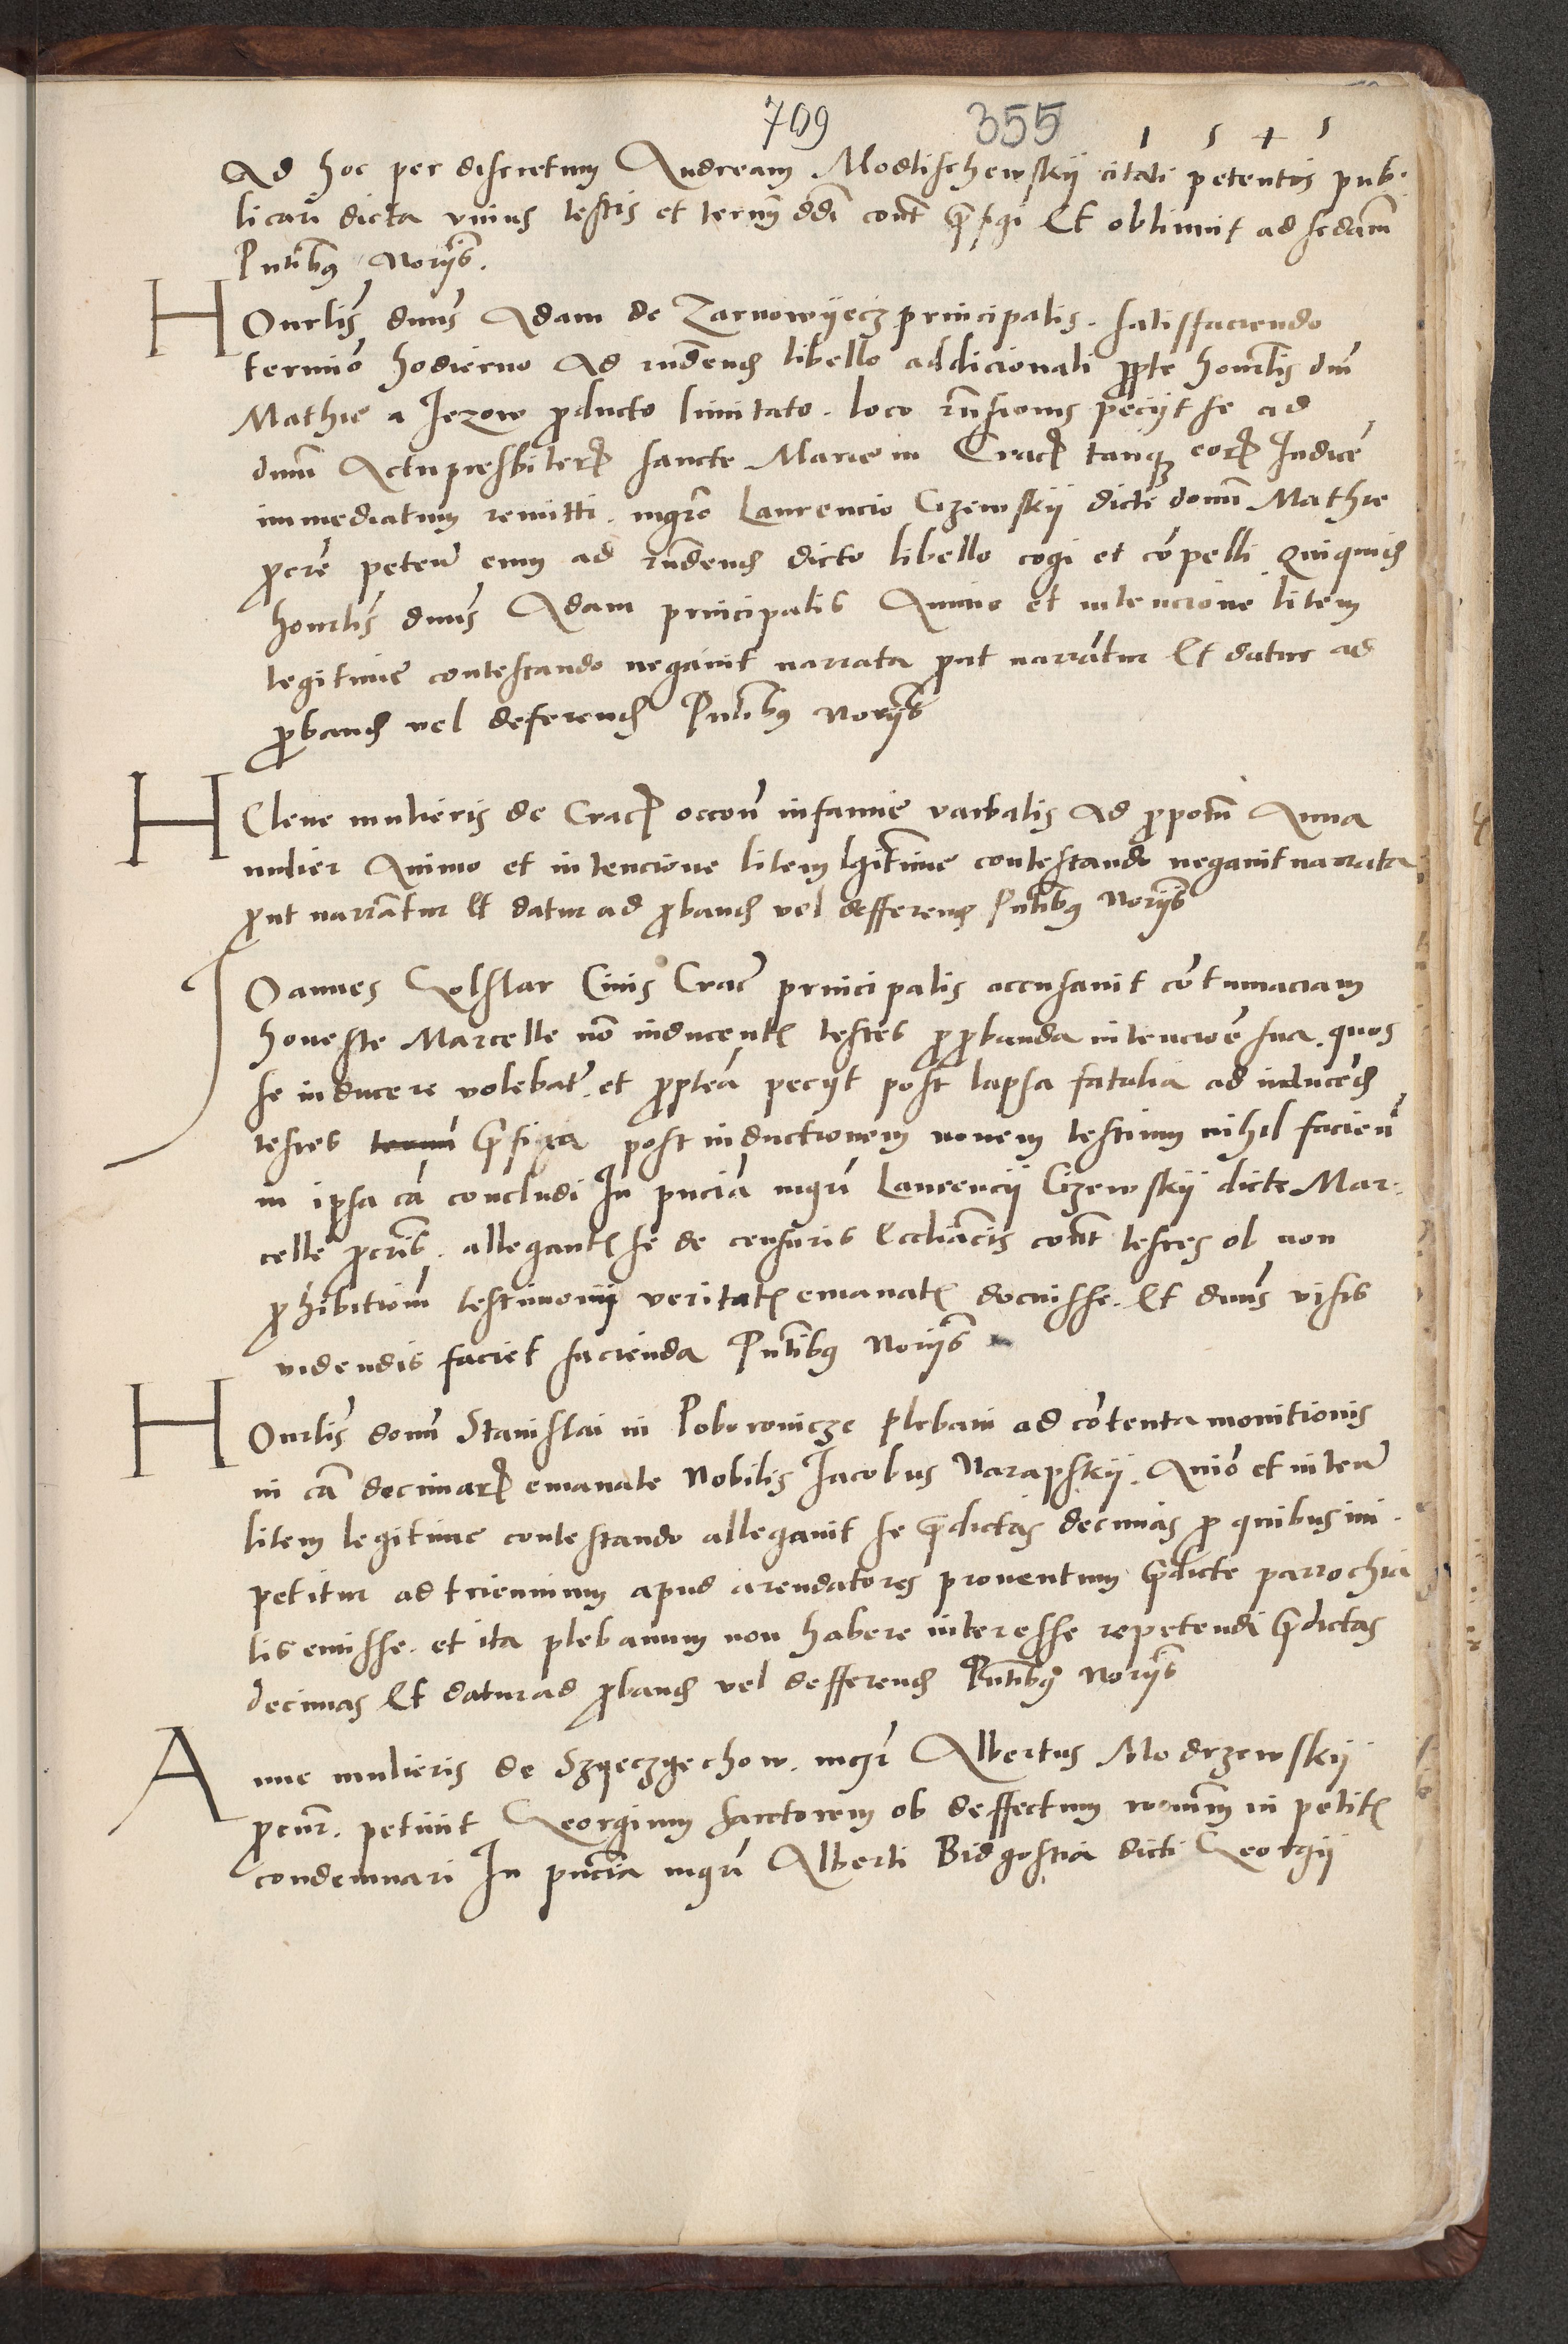 709 355 1 5 4 5
Ad hoc per discretum Andream Modlischewskij citati petentis pub.
licari dicta unius testis et termȋ ddi cont̃ p̃figi Et obtinuit ad sedam̃
Pñtibus Norijs.
HOnrlis̃ dnus̃ Adam de Zarnowyecz principalis. satisfaciendo
termio͂ hodierno Ad rñdend libello addicionali p̱ pte honrlis dni͂
Mathie a Jezow p̱ducto limitato. loco rñsionis peciit se ad
dnum̃ Archipresbiterꝝ sancte Marie in Cracꝝ tanqꝫ eorꝝ Judice͂
immediatum remitti. mgro͂ Laurencio Czewskij dicti domi͂ Mathie
p̱cre͂ peten̄ eum ad rñdend dicto libello cogi et co͂pelli Quiquid
honrlis̃ dnus̃ Adam principalis Animo et intencione litem
legitime contestando negavit narrata p̱ut narrãtur Et datur ad
p̱band vel deferend Pñtibus Norijs
HElene mulieris de Cracꝝ occon̄ infamie varbalis Ad p̱poitã Anna
mulier Animo et intencione litem lgittime contestando negavit narrata
p̱ut narrãtur Et datur ad p̱band vel defferend Pñtibus Norijs
JOannes Golslar Civis Crac̃ principalis accusavit co͂tumaciam
honeste Marcelle no͂ inducent̃ testes p̱ p̱banda intencio͂e sua. quos
se inducere volebat̃. et p̱ptea͂ peciit post lapsa fatalia ad inducend
testes p̃fixa post inductionem novem testium nihil facien̄
in ipsa ca͂ concludi In pñcia͂ mgri͂ Laurencij Czewskij dicte Mar-
celle p̱cris̃. allegant̃ se de censuris Eccliacis̃ cont̃ testes ob non
p̱hibitiom̃ testimonij veritat̃ emanat̃ docuisse. Et dnus̃ visis
videndis faciet facienda Pñtibus Norijs
HOnrlis̃ domi͂ Stanislai in Poborowicze plebani ad co͂tenta monitionis
in ca͂ decimarꝝ emanate Nobilis Jacobus Narapskij. Anio͂ et inten̄
litem legitime contestando allegavit se p̃dictas decimas p̱ quibus im-
petitur ad triennium apud arendatores proventuum p̃dicte parrochia
lis emisse. et ita plebanum non habere interesse repetendi p̃dictas
decimas Et datur ad p̱band vel defferend Pñtibus Norijs
ANne mulieris de Szyeczyechow. mgr̃ Albertus Modrzewskij
p̱cur̃. petiuit Georgium sartorem ob deffectum in petit̃
condemnari In pñcia mgri͂ Alberti Bidgostia dicti Georgij